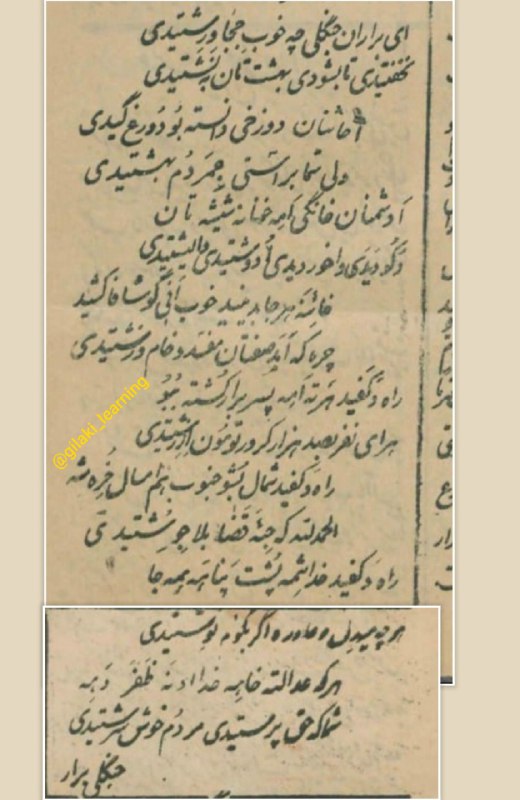 ای براران جنگلی چه خوب جخا ورشتیدی
نکفتیدی تا بشودی بهشت تان بنشتیدی
آخائنان دوزخی دانسته بو دورغ گیدی
ولی شما براستی جمردم بهشتیدی
ا دشمنان خانگی امه خانه نیشته تان
دگودیدی واخوردیدی اودوشتیدی والیشتیدی
خائنه هر جا بدیئید خوب انی گوشا فاکشید
چره که اید صفتان مفسد و خام و زشتیدی
راه دکفید هرته امه پسر برار کشته ببو
هرای نفر بصد هزار کرور تومون ارشتیدی
راه دکفید شمال بشو جنوب بنم امسال خره شه
الحمدلله که جه قضا بلا جورشتیدی
راه دکفید خدا شمه پشت پناهه همه جا
هر چه میدل ه عاوره اگر بگوم نوشتیدی
هر که عدالته خایه خدا اونه ظفر دهه
شما که حق پرستیدی مردم خوش سرشتیدی
جنگلی برار
@gilaki_learning